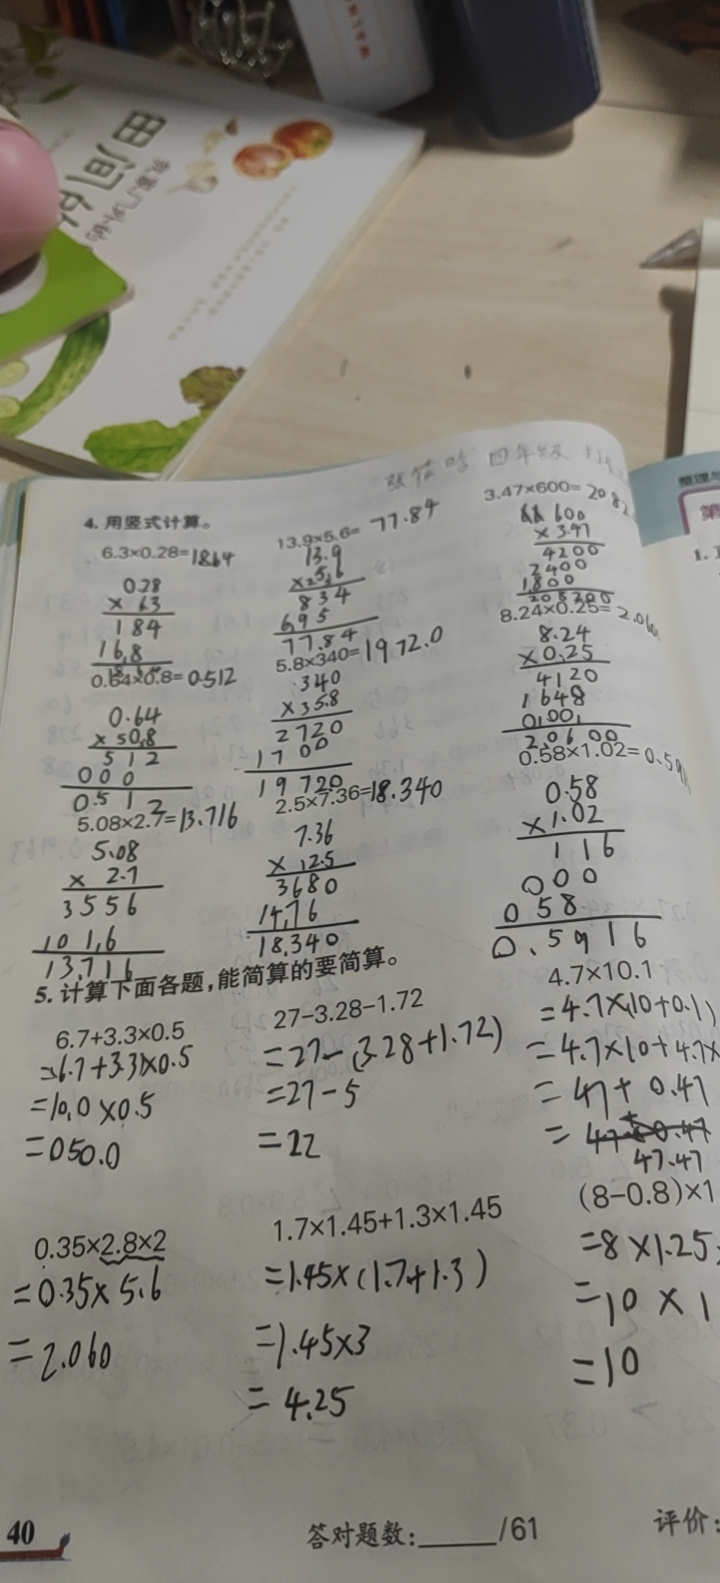 田间
四年级
4. 用竖式计算。
6.3×0.28=1864
0.28
× 63
184
16,8
13.9×5.6= 77.84
13.9
834
695
77.84
3.47×600=
600
× 3.47
4200
2400
1800
208200
0.64×0.8=0.512
0.64
512
000
0.512
5.8×340=1972.0
340
2720
1700
19720
8.24×0.25=2.060
8.24
×0.25
4120
1648
0,00,
2.0600
5.08×2.7=13.716
5.08
× 2.7
3556
101,6
13.716
2.5×7.36=18.340
7.36
× 2.5
3680
14,76
18.340
0.58×1.02=0.59
0.58
×1.02
116
000
058
0.5916
5. 计算下面各题,能简算的要简算。
6.7+3.3×0.5
=(6.7+3.3)×0.5
=10,0×0.5
=050.0
27−3.28−1.72
=27−(3.28+1.72)
=27−5
=22
4.7×10.1
=4.7×(10+0.1)
=4.7×10+4.7×
=47+0.47
=
47.47
0.35×2.8×2
=0.35×5.6
=2.060
1.7×1.45+1.3×1.45
=1.45×(1.7+1.3)
=1.45×3
=4.25
(8−0.8)×1
=8×1.25
=10×1
=10
40
答对题数:_____/61
评价:
整理与
第
1.